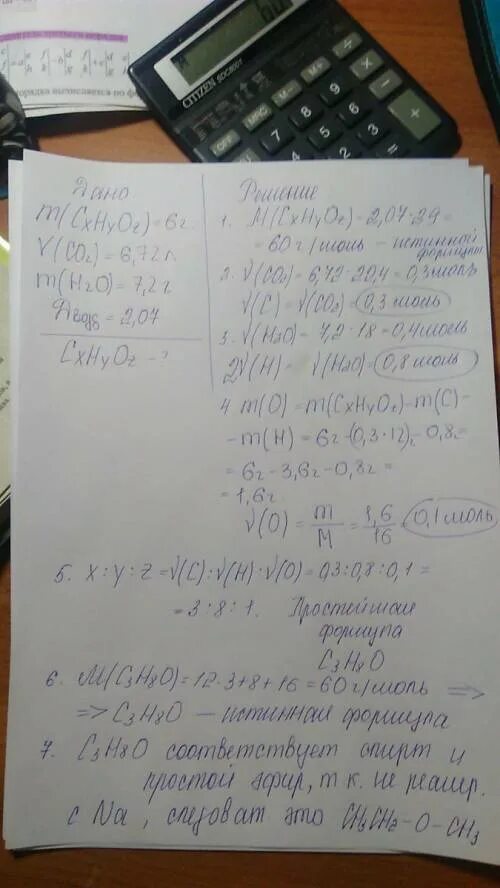 CITIZEN SDC-800
OFF
MRC
M-
M+
÷
7
8
9
×
4
5
6
-
1
2
3
+
Дано
m(CxHyOz)=6г
V(CO2)=6,72л
m(H2O)=7,2г
Dвозд=2,07
CxHyOz - ?
Решение
1. M(CxHyOz)=2,07·29=
=60г/моль – истинной
формулы
2. √(CO2)=6,72·22,4=0,3моль
√(C)=√(CO2)=0,3 моль
3. √(H2O)=7,2·18=0,4моль
2√(H)= √(H2O)=0,8 моль
4 m(O)=m(CxHyOz)-m(C)-
-m(H)=6г-(0,3·12)-0,8=
=6г-3,6г-0,8г=
=1,6г
√(O)=m/M=1,6/16=0,1 моль
5. x:y:z=√(C):√(H):√(O)=0,3:0,8:0,1=
=3:8:1. Простейшая
формула
C3H8O
6. M(C3H8O)=12·3+8+16=60г/моль =>
=> C3H8O – истинная формула
7. C3H8O соответствует спирт и
простой эфир, т.к. не реагир.
с Na, следоват это CH3CH2-O-CH3